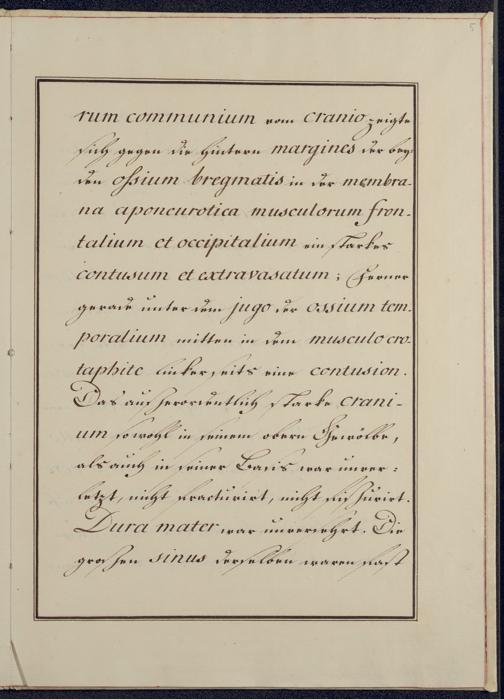 5
rum communium vom cranio zeigte
sich gegen die hintern margines der bey-
den ossium bregmatis in der membra-
na aponeurotica musculorum fron-
talium et occipitalium ein starkes
contusum et extravasatum; Ferner
gerade unter dem jugo der ossium tem-
poralium mitten in dem musculo cro-
taphite linkerseits eine contusion.
Das ausserordentlich starke crani-
um sowohl in seinem obern Gewölbe,
als auch in seiner Basis war unver-
letzt, nicht fracturirt, nicht fissurirt.
Dura mater war unversehrt. Die
grossen sinus derselben waren fast